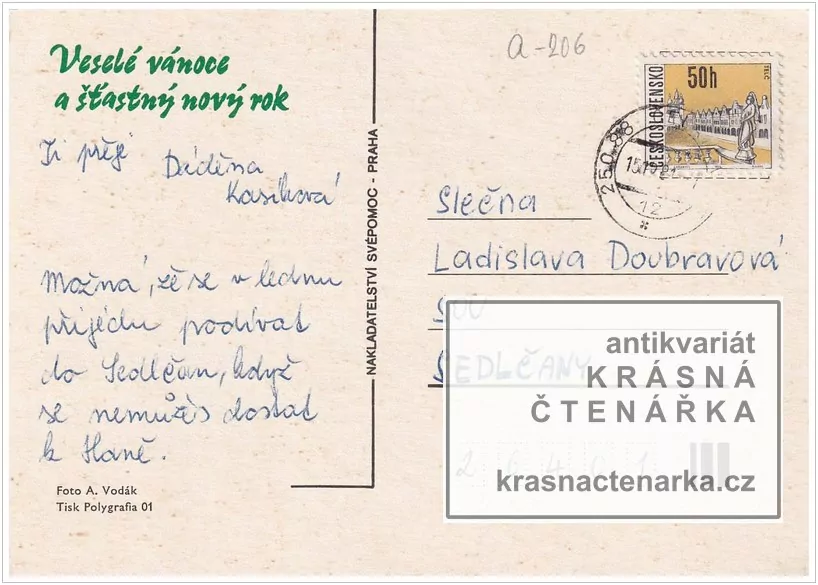 Veselé vánoce
a šťastný nový rok
Ti přeje Daděna
Kasíková
Možná, že se v lednu
přijedu podívat
do Sedlčan, když
se nemůžeš dostat
k Haně.
Foto A. Vodák
Tisk Polygrafia 01
NAKLADATELSTVÍ SVÉPOMOC - PRAHA
a-206
50h
TELČ
ČESKOSLOVENSKO
Slečna
Ladislava Doubravová
SOU
SEDLČANY
2 6 4 0 1
antikvariát
KRÁSNÁ
ČTENÁŘKA
krasnactenarka.cz